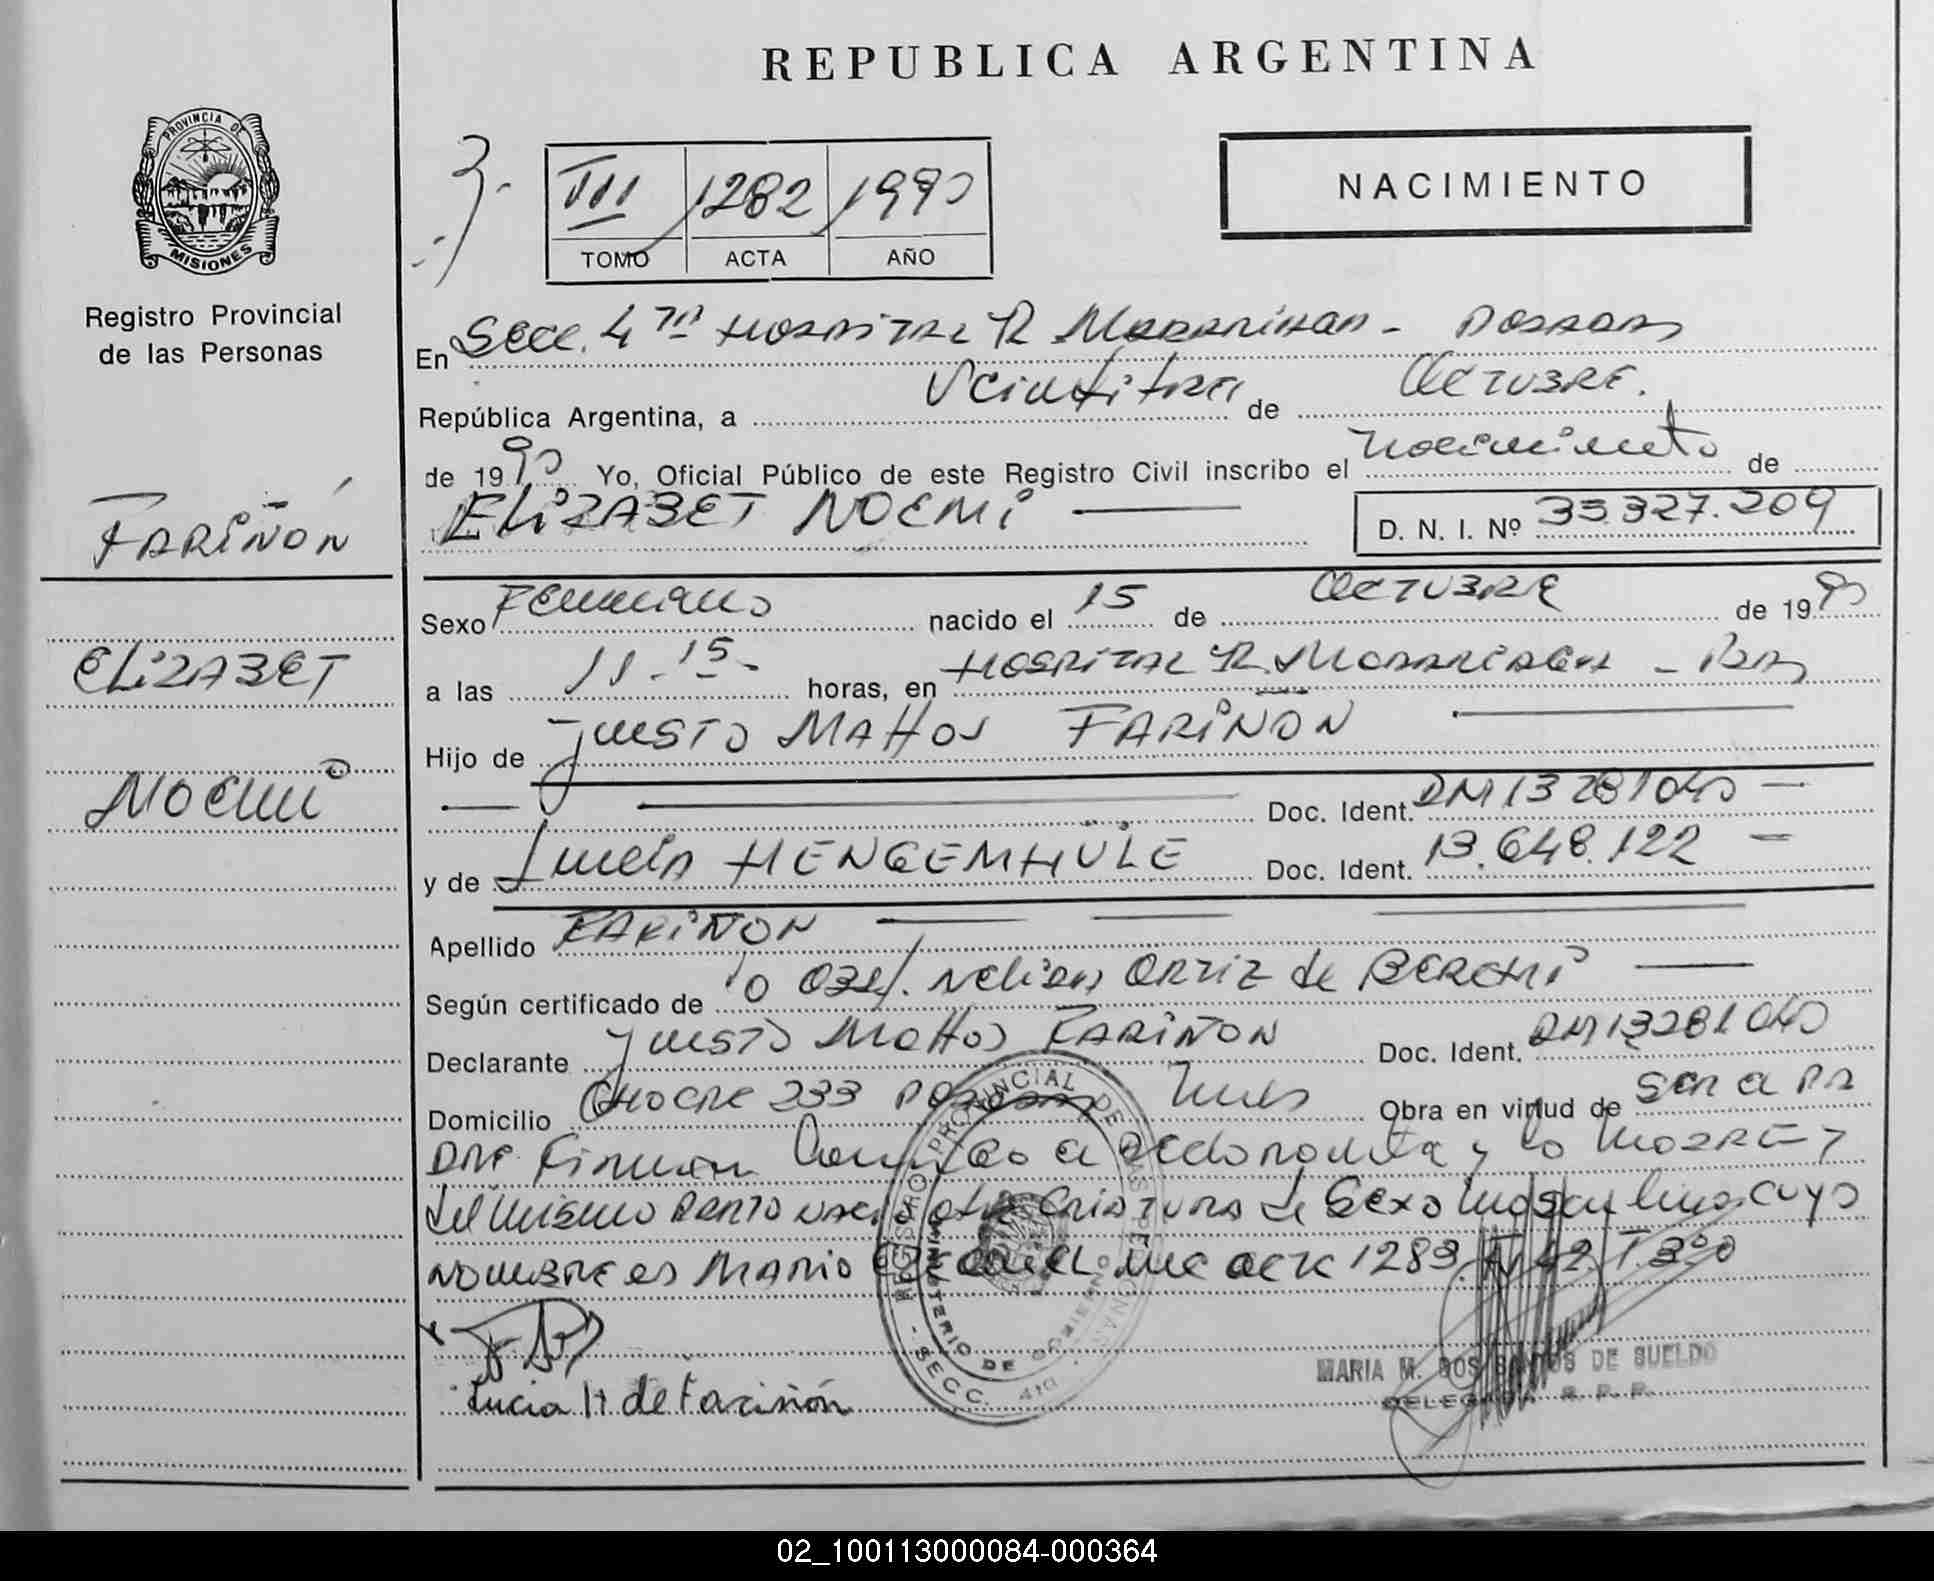 REPUBLICA ARGENTINA
PROVINCIA DE
MISIONES
Registro Provincial
de las Personas
III 1282 1990
TOMO ACTA AÑO
NACIMIENTO
En Secc. 4ta Hospital R Madariaga - Posadas
República Argentina, a Veintitres de Octubre.
de 1990 Yo, Oficial Público de este Registro Civil inscribo el nacimiento de
ELIZABET NOEMI D. N. I. Nº 35.327.209
FARIÑON
ELIZABET
NOEMI
Sexo Femenino nacido el 15 de OCTUBRE de 1990
a las 11-15- horas, en Hospital R. Madariaga - Pdas
Hijo de Justo Mattos FARIÑON
Doc. Ident. DNI 13281040 -
y de Lucia HENGEMHÜLE Doc. Ident. 13.648.122 -
Apellido FARIÑON
Según certificado de la Obst. Nelida Ortiz de
Declarante Justo Mattos FARIÑON Doc. Ident. DNI 13281040
Domicilio 233 Posadas Mnes Obra en virtud de Ser a Pa
DRE Firman Conmigo el declarante y la MADRE y
del mismo parto nacio otra criatura de Sexo Masculino cuyo
NOMBRE es MARIO en el acta 1283. Fº 42. T. 3º
Lucia H de Fariñón
REGISTRO PROVINCIAL DE LAS PERSONAS
MINISTERIO DE GOBIERNO
- SECC. 4ta -
MARIA M. DOS SANTOS DE SUELDO
DELEGADA R. P. P.
02_100113000084-000364